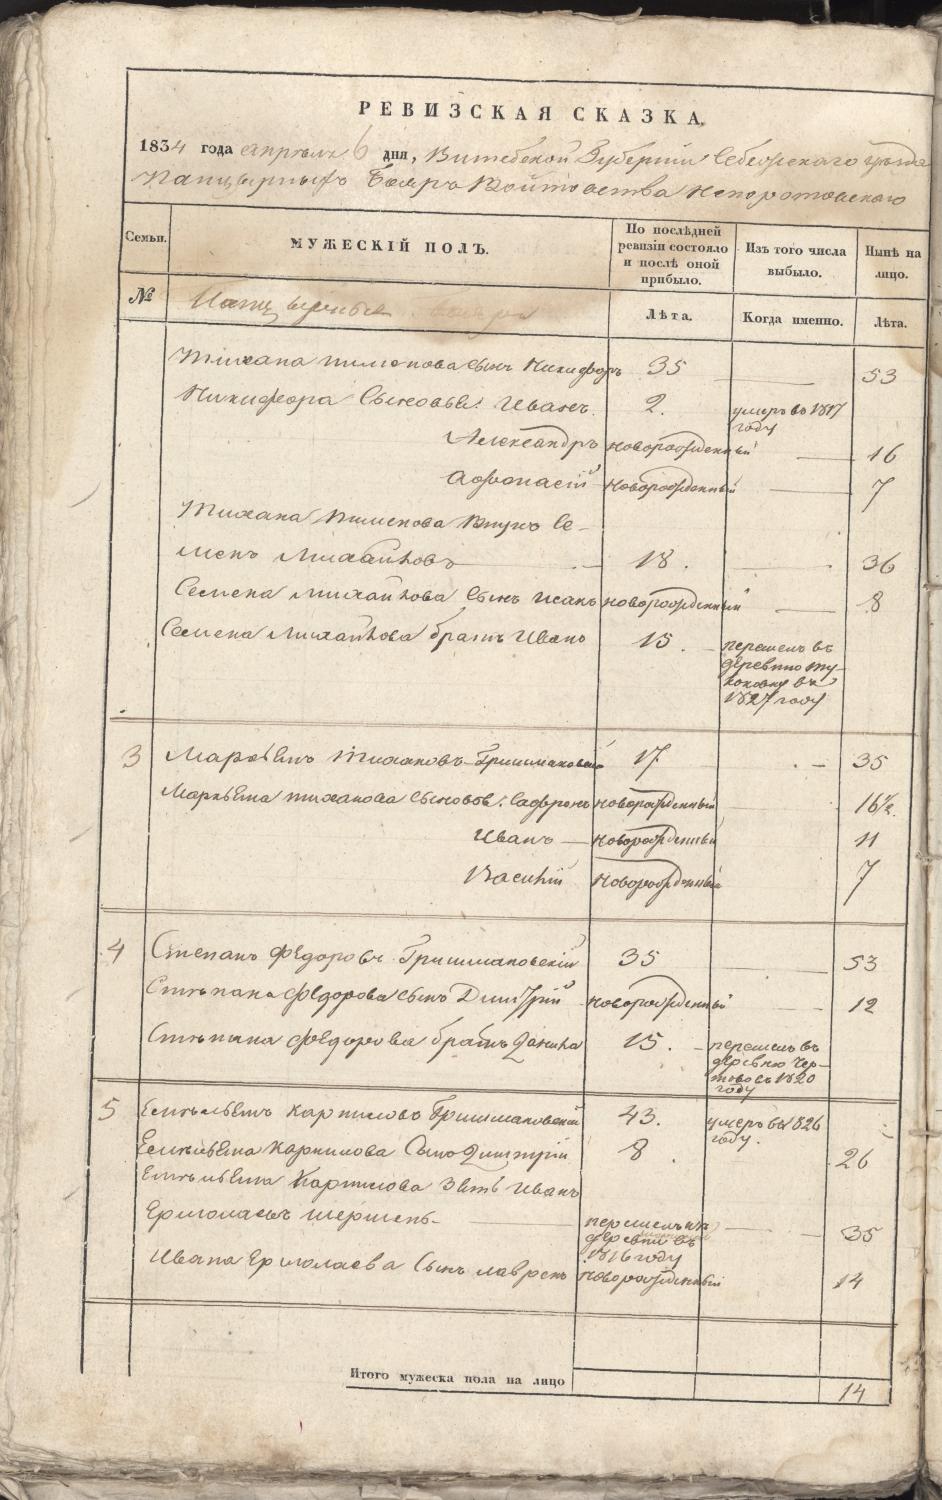 РЕВИЗСКАЯ СКАЗКА.
1834 года апреля 6 дня, Витебской Губернии Себежскаго уѣзда
Панцырныхъ Бояръ Войтовства Непоротовскаго
Семьи.
МУЖЕСКІЙ ПОЛЪ.
По послѣдней ревизіи состояло и послѣ оной прибыло.
Изъ того числа выбыло.
Нынѣ на лицо.
№
Панцырные бояре
Лѣта.
Когда именно.
Лѣта.
Тихана Пименова сынъ Никифоръ 35 53
Никифора Сыновья: Иванъ 2. умеръ въ 1817 году
Александръ новорожденный 16
Афонасій новорожденный 7
Тихана Пименова Внукъ Се-
менъ Михайловъ 18. 36
Семена Михайлова Сынъ Исакъ новорожденный 8
Семена Михайлова братъ Иванъ 15. перешелъ въ деревню въ 1827 году
3 Маркѣлъ Тихановъ Гришмановскій 17 35
Маркѣла Тиханова Сыновья: Сафронъ новорожденный 16½
Иванъ новорожденный 11
Василій новорожденный 7
4 Степанъ Федоровъ Гришмановскій 35 53
Степана Федорова сынъ Дмитрій новорожденный 12
Степана Федорова братъ Данила 15. перешелъ въ деревню Чертово въ 1820 году
5 Емельянъ Карпиловъ Гришмановскій 43. умеръ въ 1826 году.
Емельяна Карпилова Сынъ Дмитрій 8. 26
Емельяна Карпилова Зять Иванъ
Ермолаевъ Шершень перешелъ изъ деревни въ 1816 году 35
Ивана Ермолаева Сынъ Лавренъ новорожденный 14
Итого мужеска пола на лицо 14